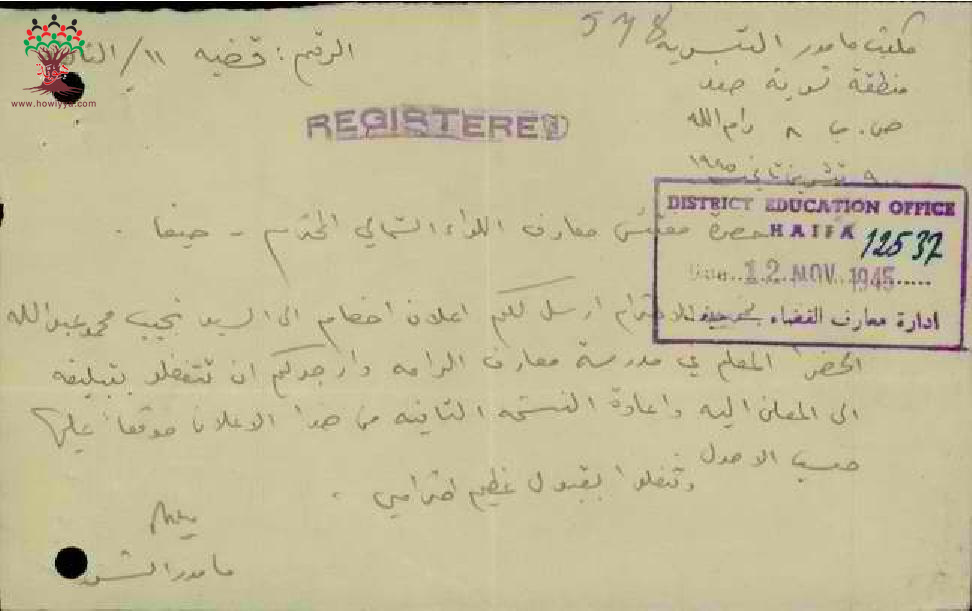 578
مكتب مأمور التسوية
الرقم: قضيه ١١/الناصرة
منطقة تسوية صفد
www.howiyya.com
ص. ب ٨ رام الله
REGISTERED
٩ تشرين ثاني ١٩٤٥
DISTRICT EDUCATION OFFICE
HAIFA
12537
Date 12 NOV 1945
ادارة معارف القضاء بحيفا
حضرة مفتش معارف اللواء الشمالي المحترم - حيفا.
للاحترام ارسل لكم اعلان اخصام الى السيد نجيب محمد عبدالله
الخضرا المعلم في مدرسة معارف الرامه وارجوكم ان تتفضلو بتبليغه
الى المعلن اليه واعادة النسخه الثانيه من هذا الاعلان موقعا عليها
حسب الاصول
وتفضلوا بقبول عظيم احترامي.
مأمور التسوية